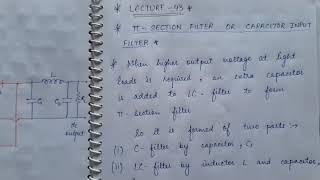 * LECTURE-43 *
* π-SECTION FILTER OR CAPACITOR INPUT
FILTER *
* When higher output voltage at light
loads is required, an extra capacitor
is added to LC-filter to form
π-section filter
So it is formed of two parts :-
(i) C-filter by capacitor, C₁
(ii) LC-filter by inductor L and capacitor,
L
C₁
C₂
dc
output